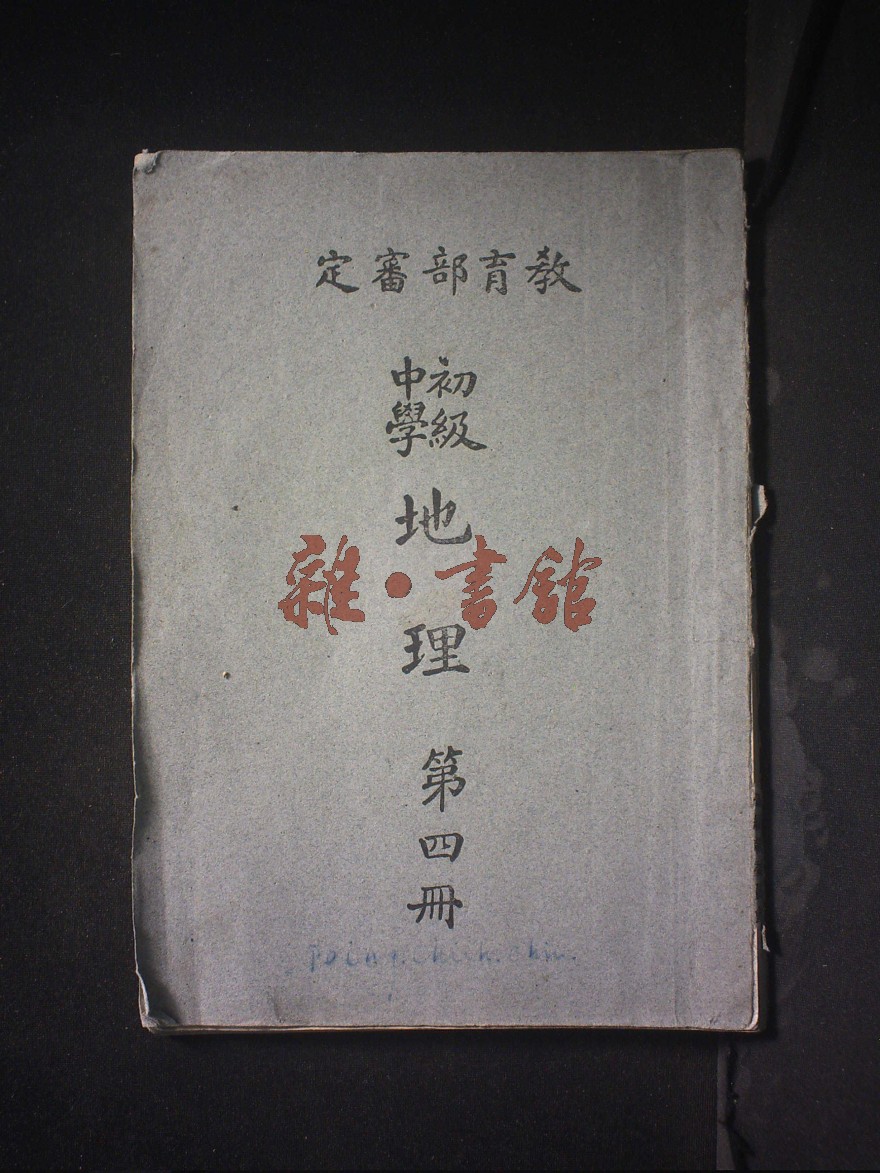 教育部審定
初級
中學
地理
第四冊
雜·書館